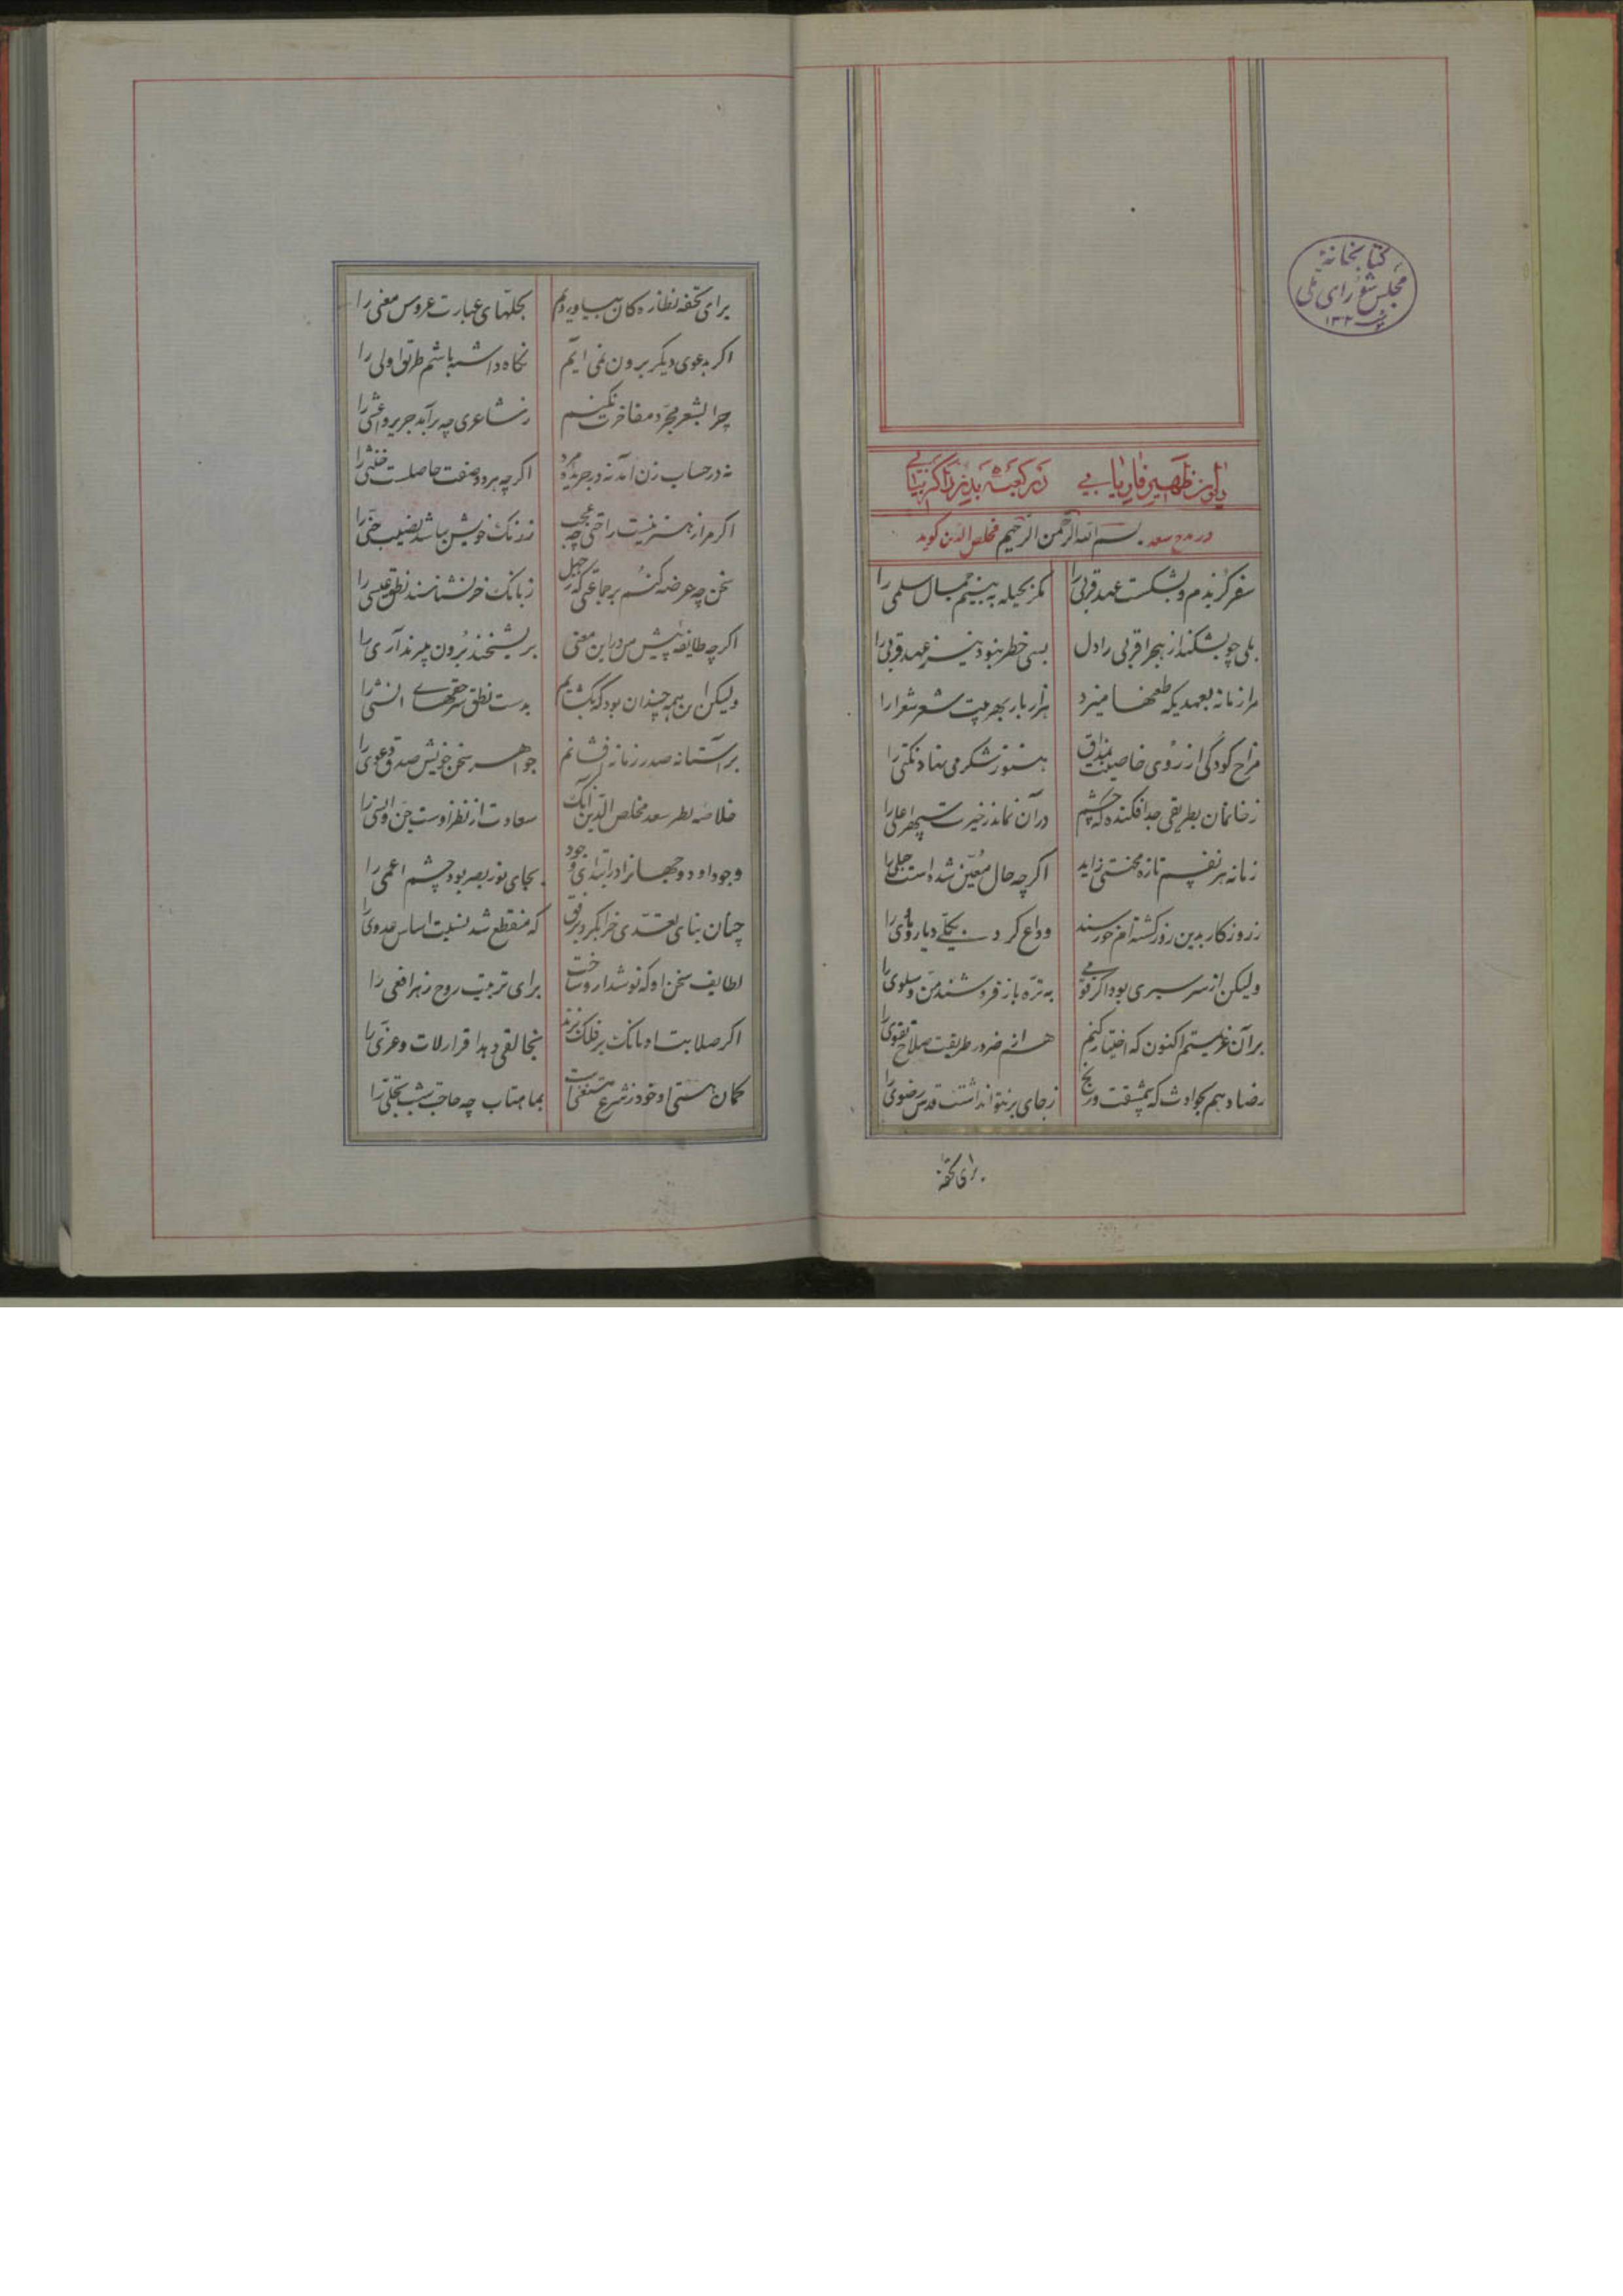 کتابخانهٔ
مجلس شورای ملی
۱۳۰۲
دیوان ظهیر فاریابی در کعبه بدزد اگر بیابی
در مدح سعد بسم الله الرحمن الرحیم مخلص الدین کوید
سفر کزیدم و بشکست عهد قربی را مکر بحیله به بینم جمال سلمی را
بلی چو بشکند از هجر اقربی را دل بسی خطر نبود نیز عهد قربی را
مرا زمانه بعهدیکه طعنها میزد هزار بار بهر بیت شعر شعرا را
مزاج کودکی از روی خاصیت بمذاق هنوز شکر می نهاد
ز خانمان بطریقی جدا فکند که چشم در آن نماند ز خیرت سپهر اعلی را
زمانه هر نفسم تازه محنتی زاید اگرچه حال معین شده است حبلی را
ز روزکار بدین روز کشته‌ام خورسند وداع کرده بکلی دیار و ماوی را
ولیکن از سر سیری بود اکر قومی به تره باز فروشند من و سلوی را
بر آن عزیمتم اکنون که اختیار کنم هم از ضرورت طریقت صلاح تقوی را
رضا دهم بحوادث که بی مشقت و رنج ز جای بر نتوان داشت قدس رضوی را
برای تحفه
برای تحفه نظاره کان بیاوردم بحلتهای عبارت عروس معنی را
اکر بدعوی دیکر برون نمی آیم نکاه داشته باشم طریق اولی را
چرا بشعر مجرد مفاخرت نکنم ز شاعری چه برآید جریر و اعشی را
نه در حساب زن آمد نه در جریده مرد اکر چه هر دو صفت حاصلست خنثی را
اکر مرا ز هنر نیست راحتی چه عجب ز رنک خویش نباشد نصیب حنی را
سخن چه عرضه کنم بر جماعتی که ز جهل ز بانک خر نشناسند نطق عیسی را
اکرچه طایفه پیش من در این معنی بریشخند برون میبرند آری را
ولیکن این همه چندان بود که بکشایم بدست نطق سر حقهای انشی را
بر آستانه صدر زمانه افشانم جواهر سخن خویش صدق دعوی را
خلاصه نظر سعد مخلص الدین آنک سعادت از نظر اوست جن و انسی را
وجود او دو جهانرا در ابتدای وجود بجای نور بصر بود چشم اعمی را
چنان بنای تعدی خراب کرد برفق که منقطع شد نسبت اساس عدوی را
لطایف سخن او که نوشدارو ساخت برای تربیت روح زهر افعی را
اکر صلابت او بانک بر فلک بزند بخالقی دهد اقرار لات و عزی را
کمان هستی او خود ز شرع مستغنیاست بماهتاب چه حاجت شب تجلی را